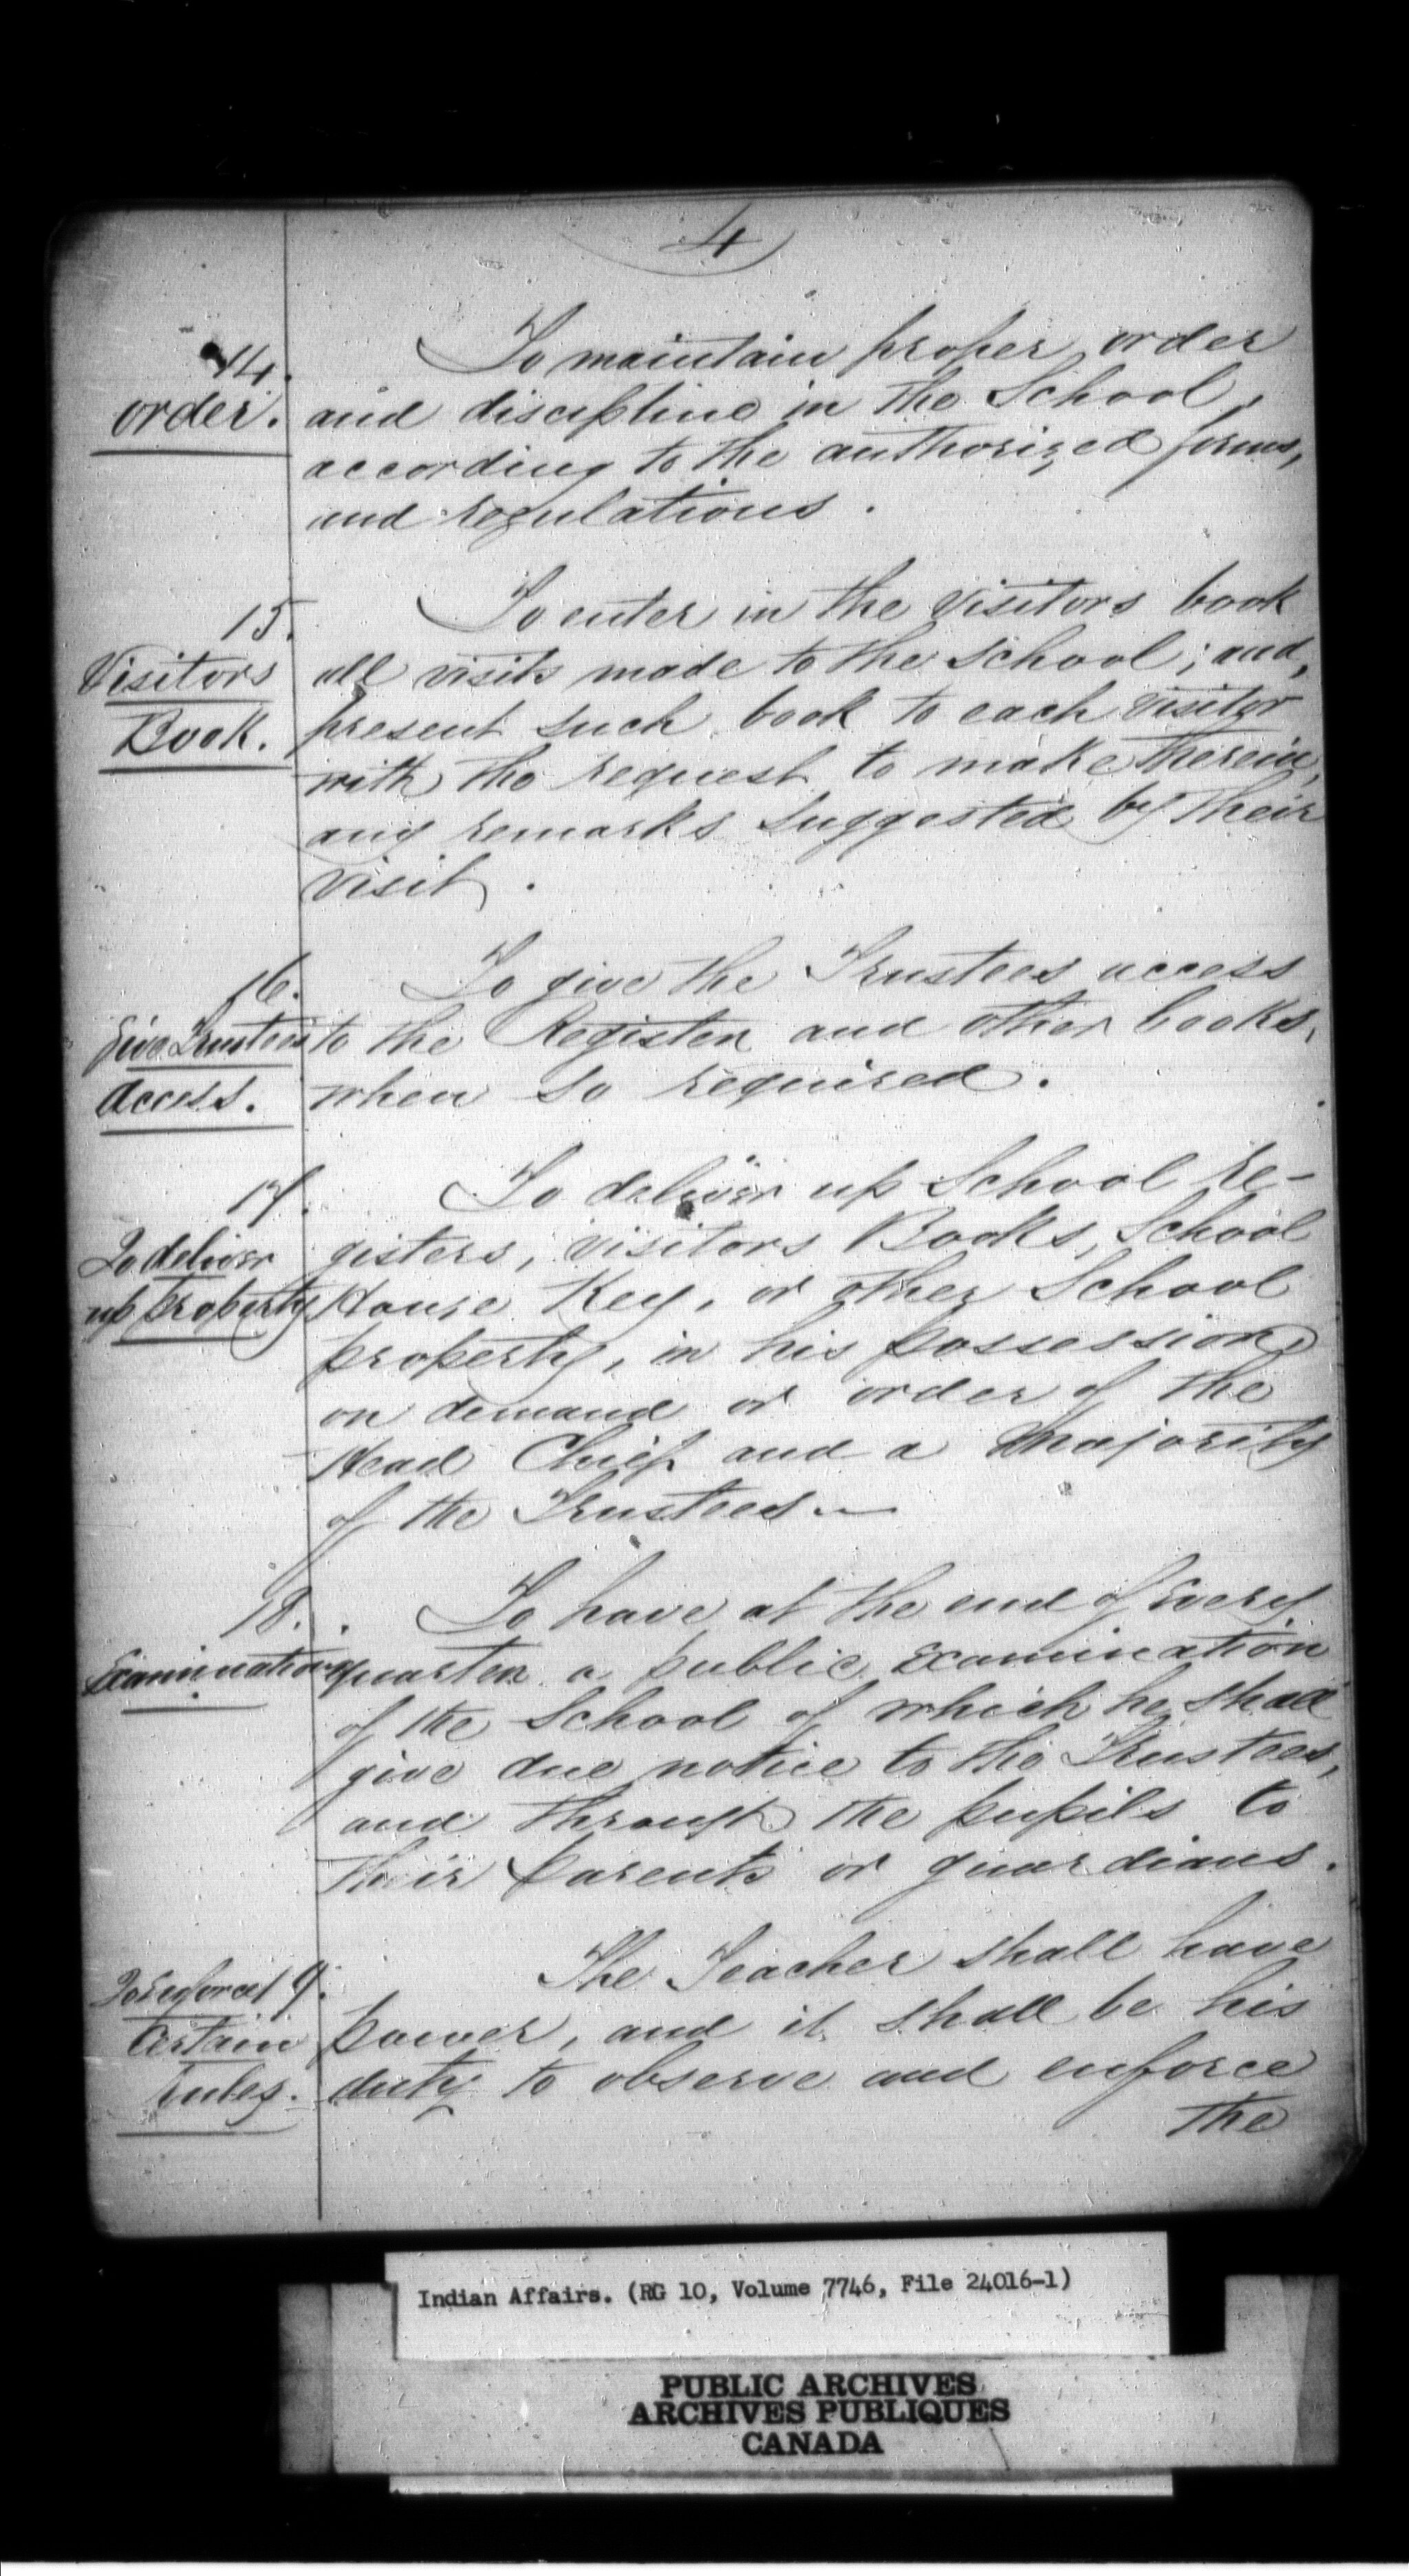 4
14.
order.
To maintain proper order
and discipline in the School,
according to the authorized forms,
and regulations.
15.
Visitors
Book.
To enter in the visitors book
all visits made to the School; and,
present such book to each visitor
with the request to make therein,
any remarks suggested by their
visit.
16.
Give Trustees
Access.
To give the Trustees access
to the Register and other books,
when so required.
17.
To deliver
up property
To deliver up School Re-
gisters, visitors Books, School
House Key, or other School
property, in his possession
on demand or order of the
Head Chief and a Majority
of the Trustees.
18.
Examination
To have at the end of Every
quarter a public Examination
of the School of which he shall
give due notice to the Trustees,
and through the pupils to
their parents or guardians.
19.
To enforce
Certain
rules.
The Teacher shall have
power, and it shall be his
duty to observe and enforce
the
Indian Affairs. (RG 10, Volume 7746, File 24016-1)
PUBLIC ARCHIVES
ARCHIVES PUBLIQUES
CANADA